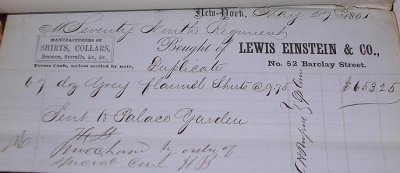 New-York, May 27 1861
M Seventy Ninth Regiment
MANUFACTURERS OF
SHIRTS, COLLARS,
Drawers, Overalls, &c., &c.
Terms Cash, unless settled by note.
Bought of LEWIS EINSTEIN & CO.,
No. 52 Barclay Street.
Duplicate
67 dz Grey flannel Shirts @ 9.75 $653.25
Sent to Palace Garden
Purchased by order of